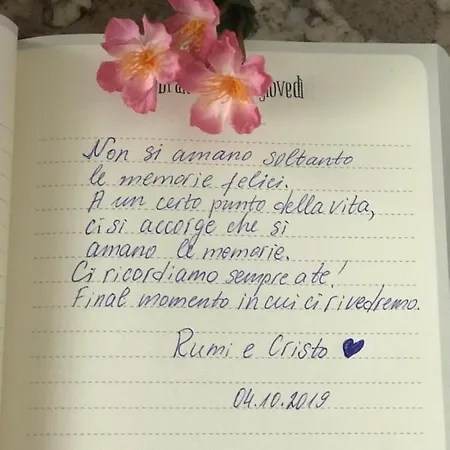 giovedì
Non si amano soltanto
le memorie felici.
A un certo punto della vita,
ci si accorge che si
amano le memorie.
Ci ricordiamo sempre ate!
Final momento in cui ci rivedremo.
Rumi e Cristo
04.10.2019